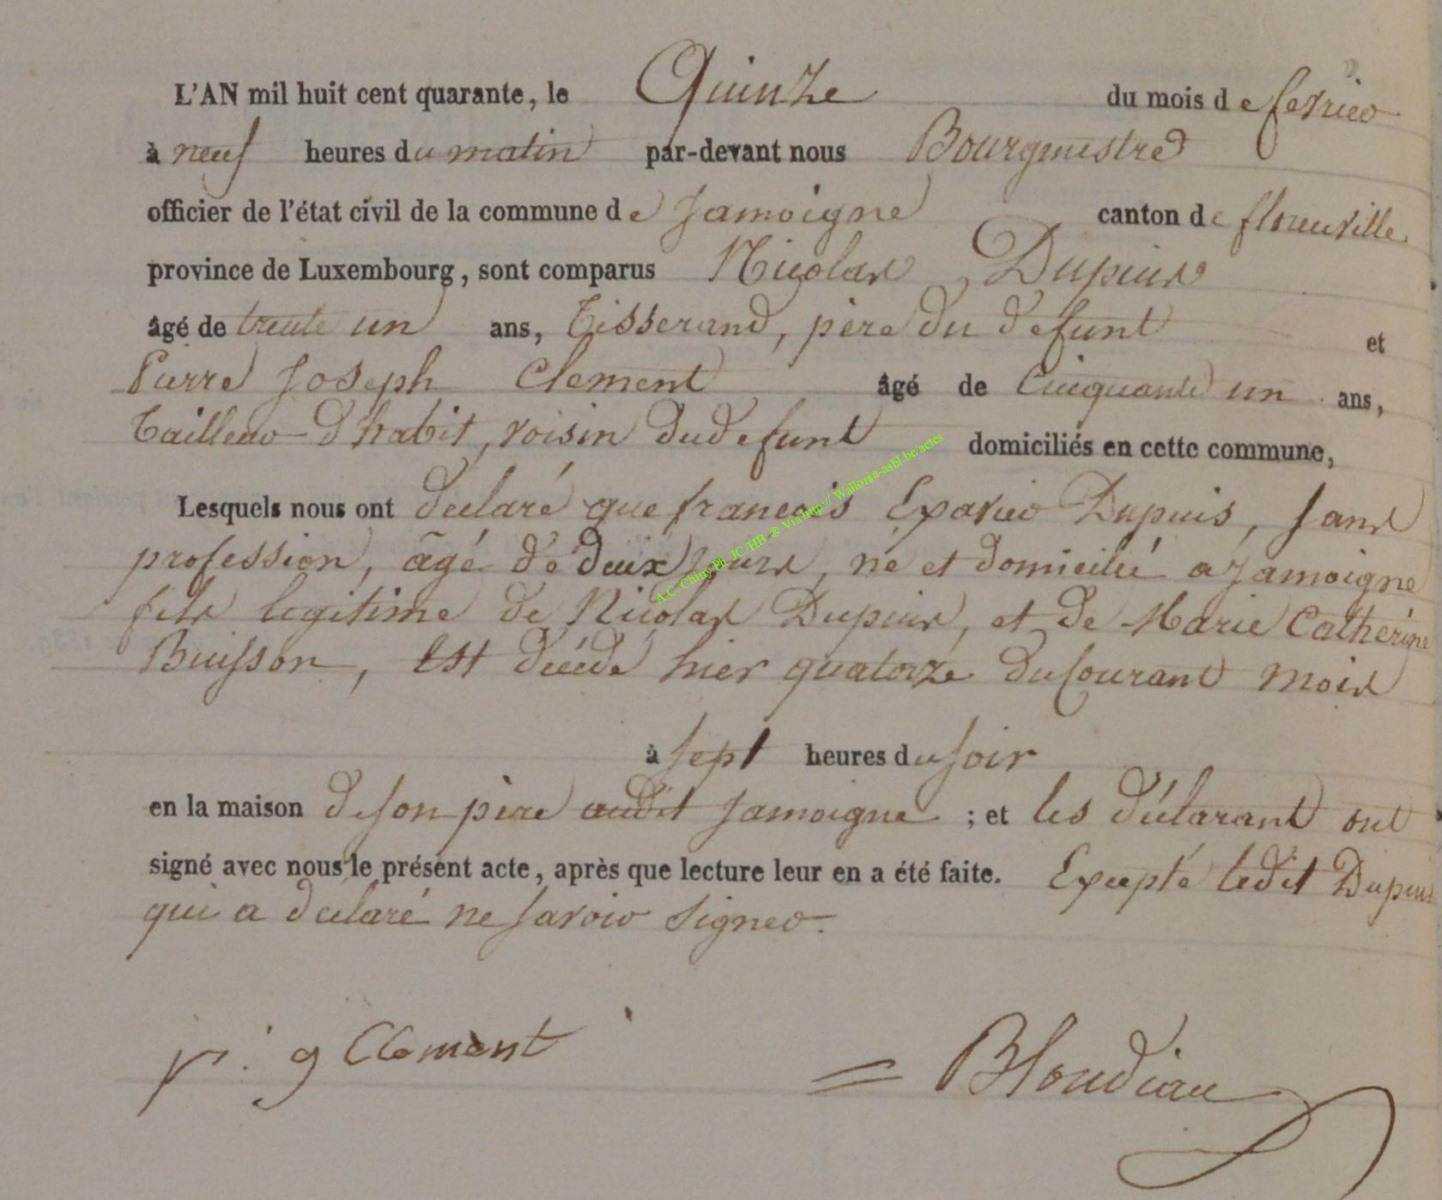 L'AN mil huit cent quarante, le Quinze du mois de fevrier
à neuf heures du matin par-devant nous Bourgmestre
officier de l'état civil de la commune de Jamoigne canton de florenville
province de Luxembourg, sont comparus Nicolas Dupuis
âgé de trente un ans, Tisserand, père du défunt et
Pierre Joseph Clement âgé de Cinquante un ans,
Tailleur d'habit, voisin du defunt domiciliés en cette commune,
Lesquels nous ont déclaré que francois Exavier Dupuis, sans
profession, âgé de deux jours, né et domicilié a Jamoigne
fils legitime de Nicolas Dupuis, et de Marie Catherine
Buisson, Est décédé hier quatorze du Courant mois
à sept heures du soir
en la maison de son père audit Jamoigne ; et les déclarant ont
signé avec nous le présent acte, après que lecture leur en a été faite. Excepté ledit Dupuis
qui a déclaré ne savoir signer.
p. j Clement = Blondiau